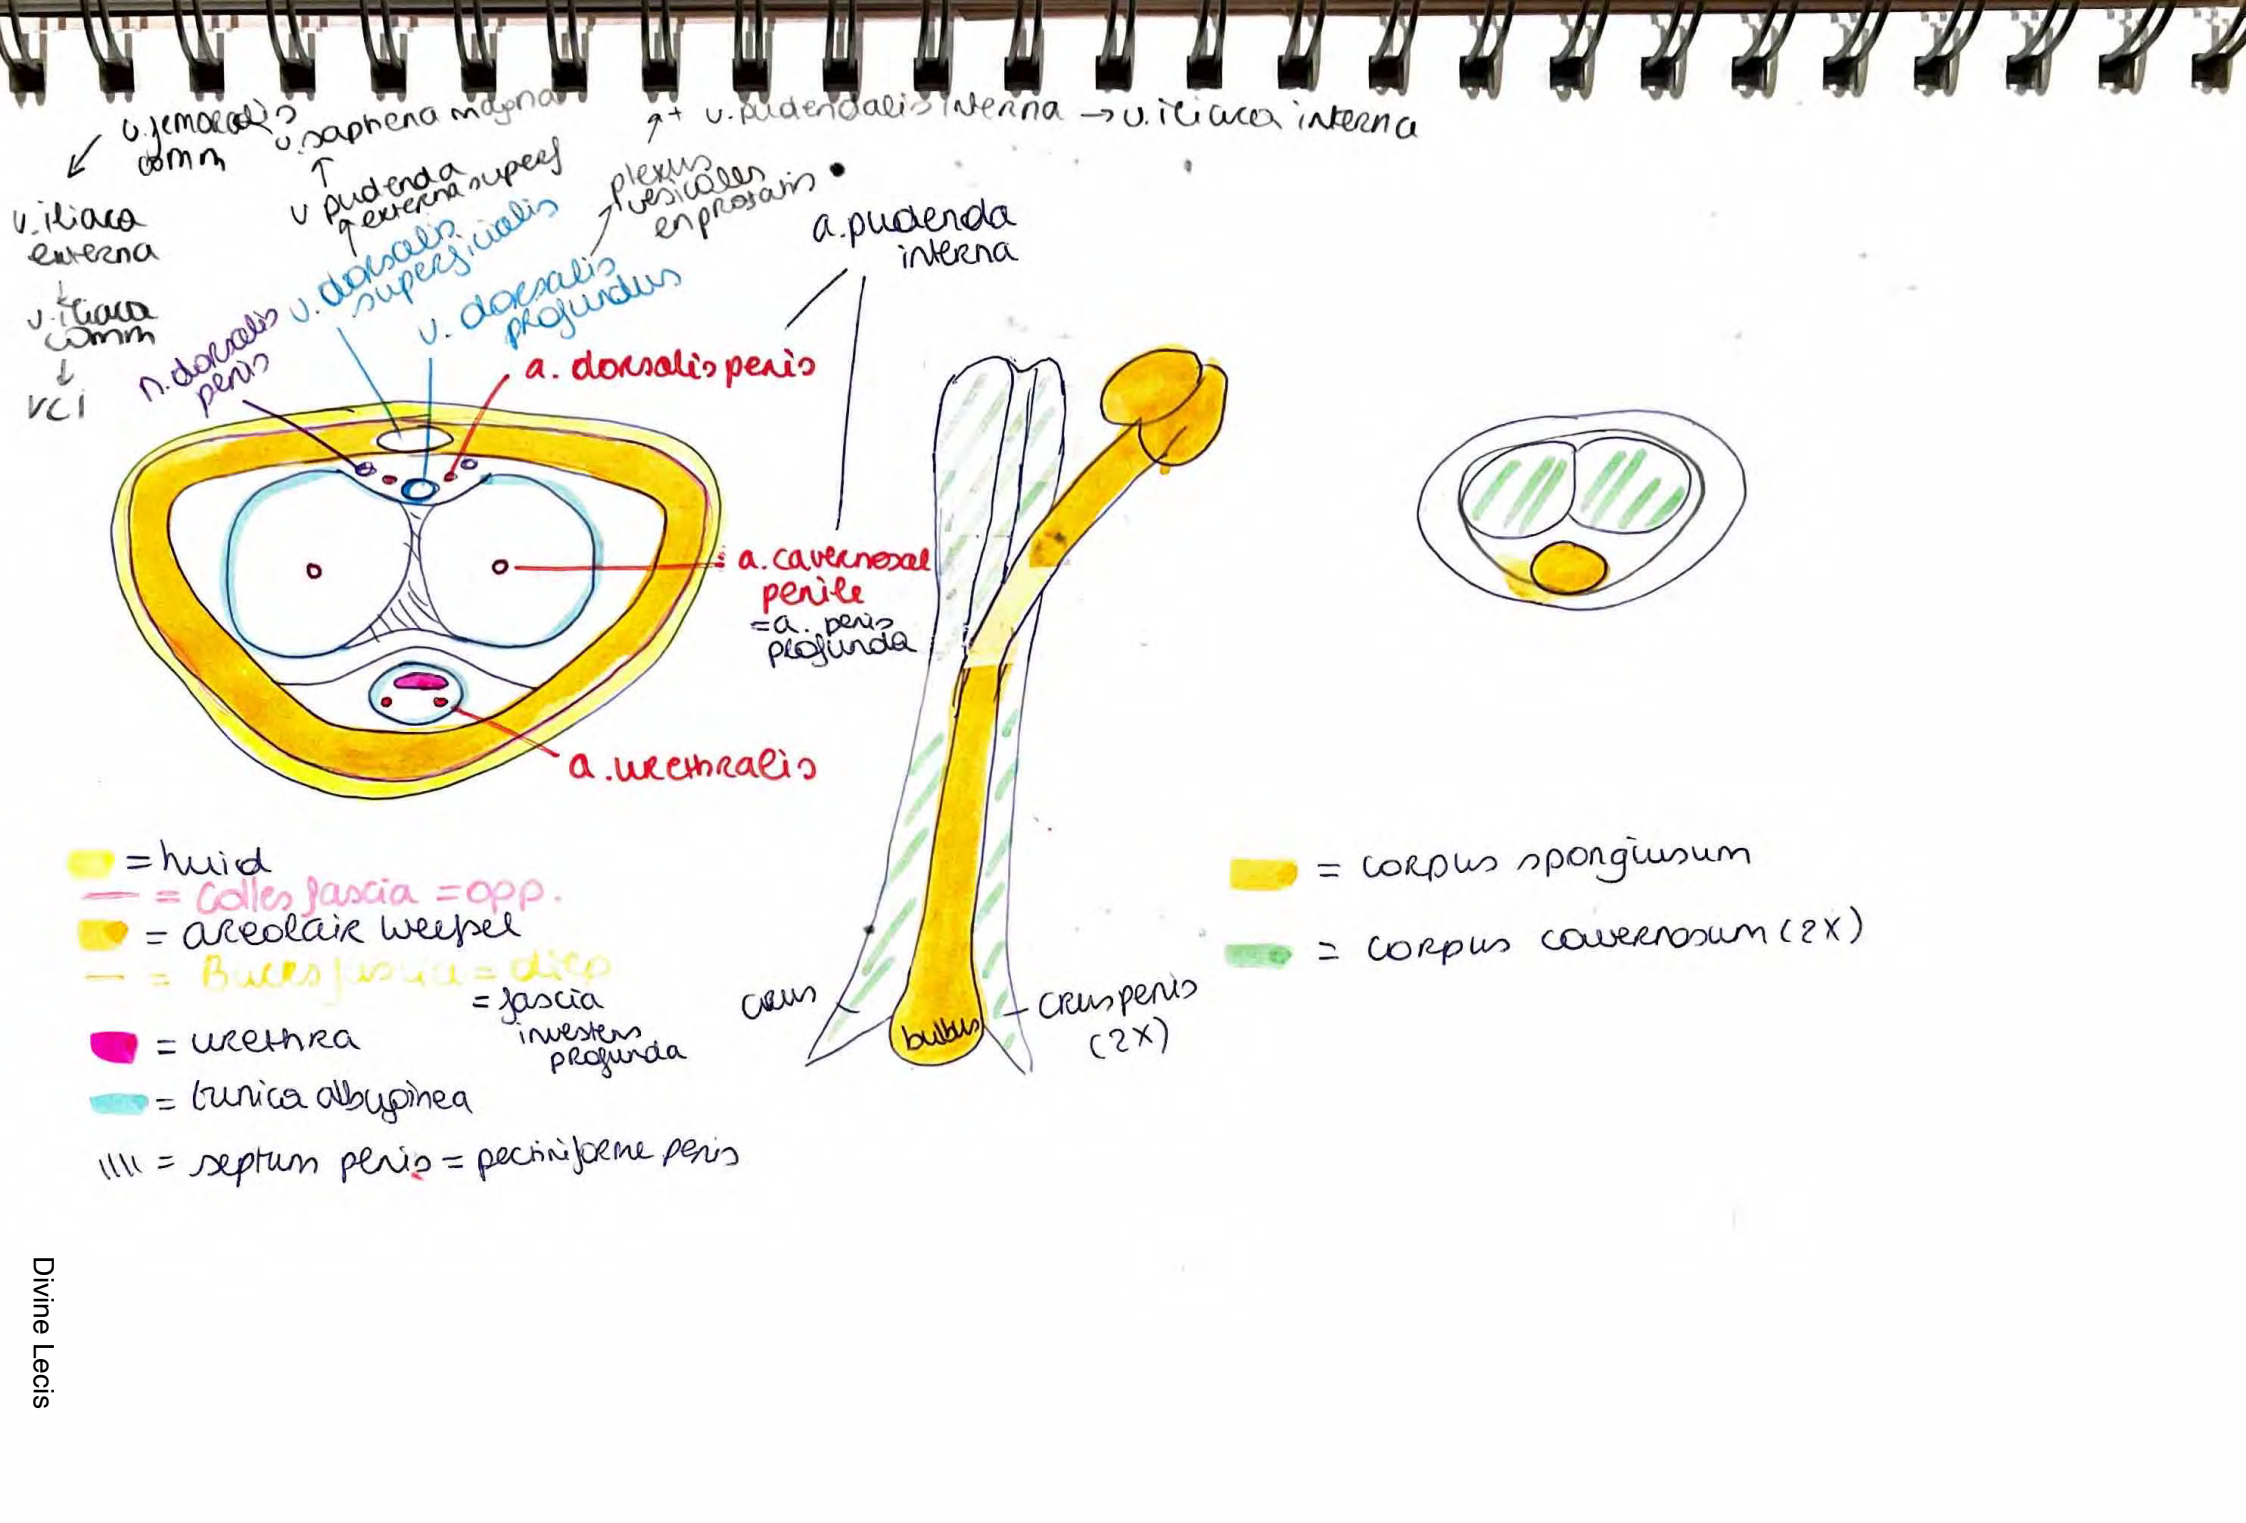 v. femoralis
comm
v. saphena magna
v pudenda
externa superf
↗+ v. pudendalis interna → v. iliaca interna
plexus
vesicales
en prostatis
v. iliaca
externa
↓
v. iliaca
comm
↓
VCI
a. pudenda
interna
n. dorsalis
penis
v. dorsalis
superficialis
v. dorsalis
profundus
a. dorsalis penis
a. cavernosal
penile
= a. penis
profunda
a. urethralis
= huid
= Colles fascia = opp.
= areolair weefsel
= Bucks fascia = diep
= fascia
investens
profunda
= urethra
= tunica albuginea
= septum penis = pectiniforme penis
crus
bulbus
crus penis
(2x)
= corpus spongiusum
= corpus cavernosum (2x)
Divine Lecis